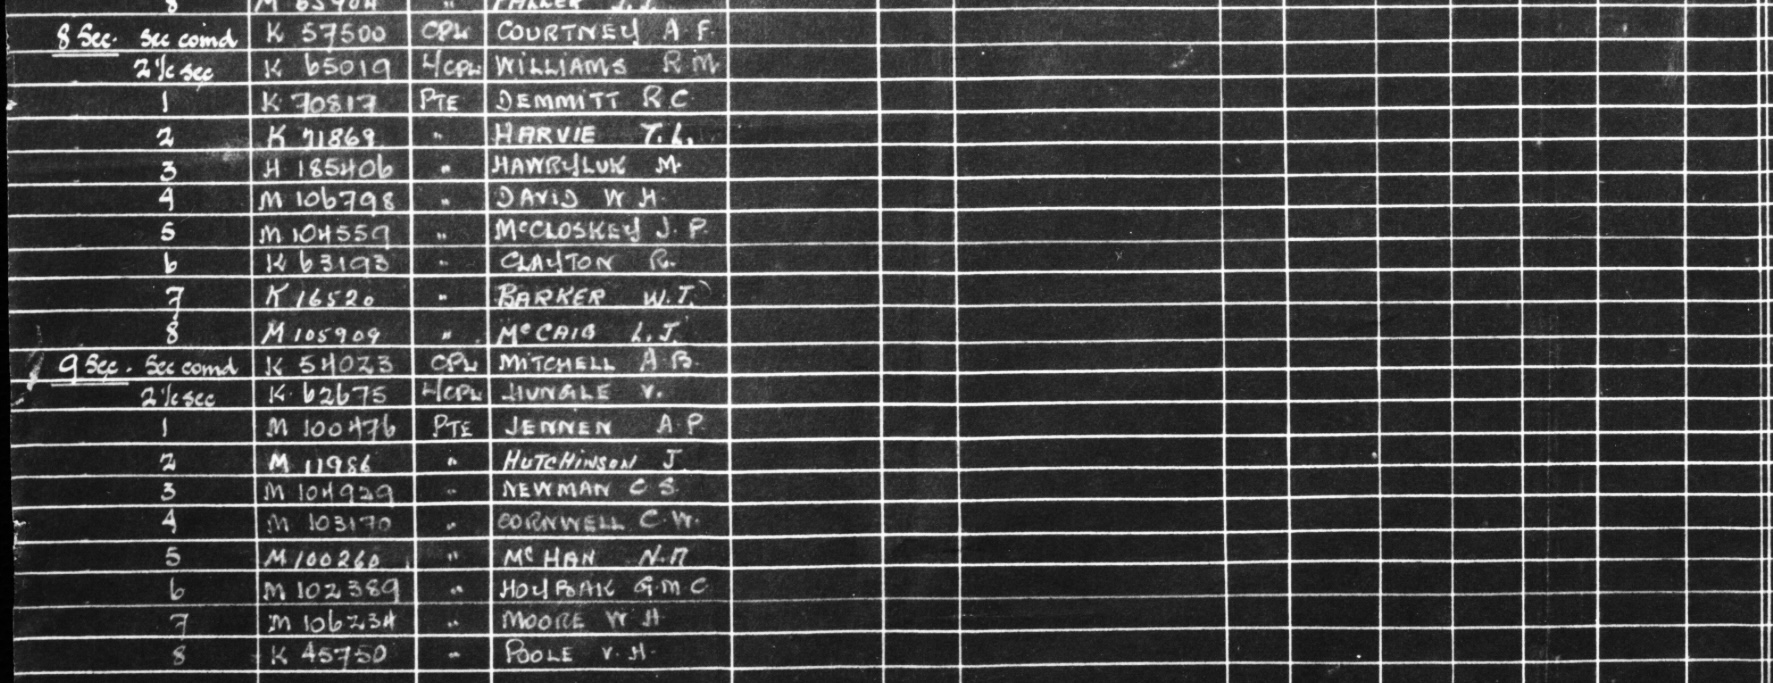 8 M 65904 " J.J.
8 Sec. Sec comd K 57500 CPL COURTNEY A F.
2 i/c sec K 65019 L/CPL WILLIAMS R M
1 K 70817 PTE DEMMITT R C
2 K 71869 " HARVIE T. L.
3 H 185406 " HAWRYLUK M
4 M 106798 " DAVID W H.
5 M 104559 " McCLOSKEY J. P.
6 K 63193 " CLAYTON R.
7 K 16520 " BARKER W. J.
8 M 105909 " McCAIG L. J.
9 Sec. Sec comd K 54023 CPL MITCHELL A B.
2 i/c sec K 62675 L/CPL HUNGLE V.
1 M 100476 PTE JENNEN A P.
2 M 11986 " HUTCHINSON J
3 M 104929 " NEWMAN C S.
4 M 103170 " CORNWELL C. W.
5 M 100260 " McHAN
6 M 102389 " HOLYBAK G M C
7 M 106234 " MOORE W H
8 K 45750 " POOLE V. H.